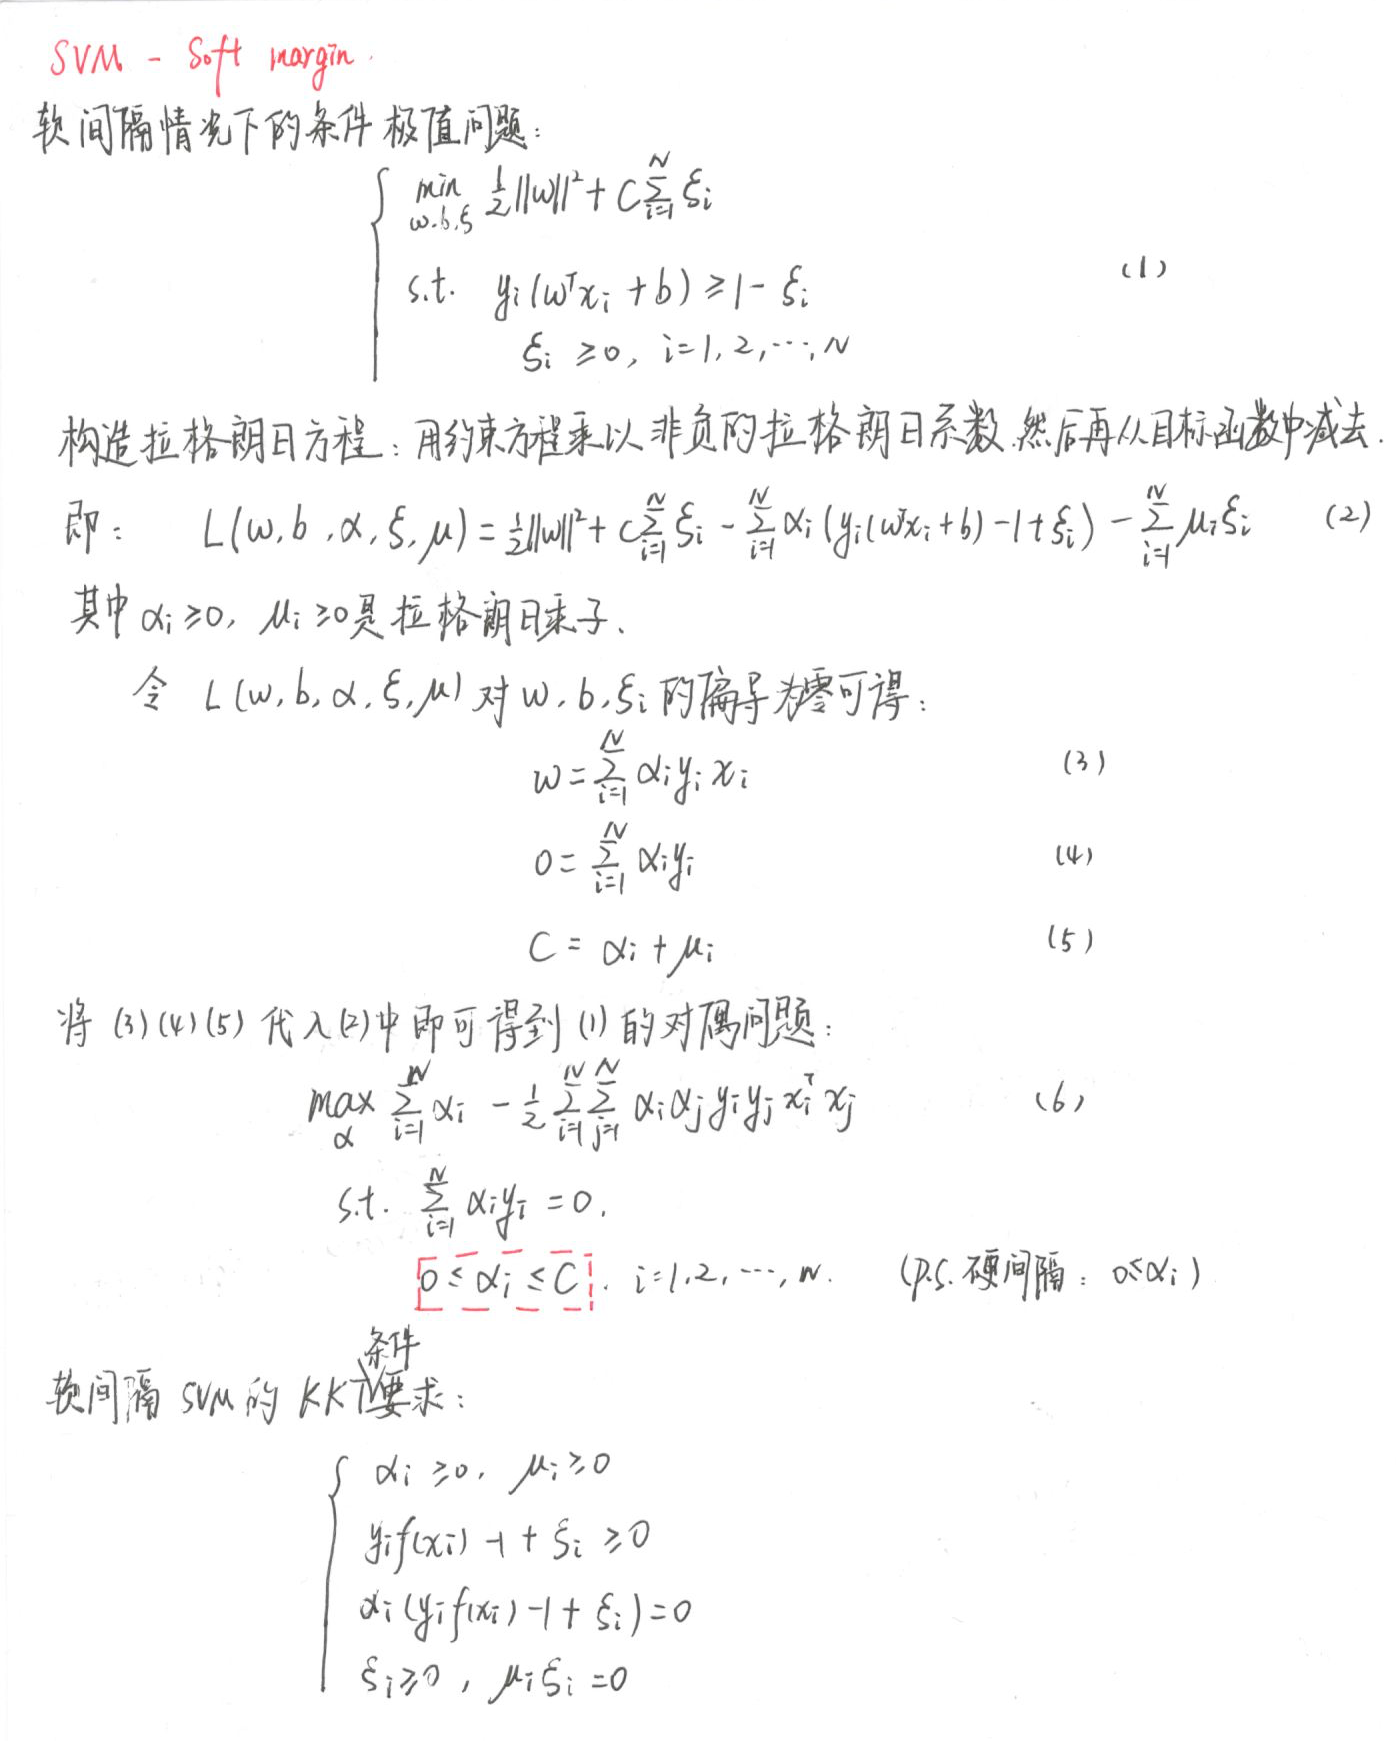 SVM - Soft margin.
软间隔情况下的条件极值问题:
min 1/2||w||² + C∑ᵢ₌₁ᴺ ξᵢ
w.b.ξ
s.t. yᵢ(wᵀxᵢ + b) ≥ 1 - ξᵢ (1)
ξᵢ ≥ 0, i=1,2,…,N
构造拉格朗日方程:用约束方程乘以非负的拉格朗日系数,然后再从目标函数中减去.
即: L(w,b,α,ξ,μ) = 1/2||w||² + C∑ᵢ₌₁ᴺ ξᵢ - ∑ᵢ₌₁ᴺ αᵢ(yᵢ(wᵀxᵢ+b) -1+ξᵢ) - ∑ᵢ₌₁ᴺ μᵢξᵢ (2)
其中 αᵢ≥0, μᵢ≥0是拉格朗日乘子.
令 L(w,b,α,ξ,μ) 对 w,b,ξᵢ 的偏导为零可得:
w = ∑ᵢ₌₁ᴺ αᵢyᵢxᵢ (3)
0 = ∑ᵢ₌₁ᴺ αᵢyᵢ (4)
C = αᵢ + μᵢ (5)
将 (3)(4)(5) 代入(2)中即可得到 (1) 的对偶问题:
max ∑ᵢ₌₁ᴺ αᵢ - 1/2 ∑ᵢ₌₁ᴺ ∑ⱼ₌₁ᴺ αᵢαⱼyᵢyⱼxᵢᵀxⱼ (6)
α
s.t. ∑ᵢ₌₁ᴺ αᵢyᵢ = 0.
0 ≤ αᵢ ≤ C. i=1,2,…,N. (P.S. 硬间隔: 0≤αᵢ)
软间隔 SVM 的 KKT条件要求:
αᵢ ≥0, μᵢ≥0
yᵢf(xᵢ) -1 + ξᵢ ≥0
αᵢ(yᵢf(xᵢ) -1 + ξᵢ)=0
ξᵢ≥0, μᵢξᵢ =0